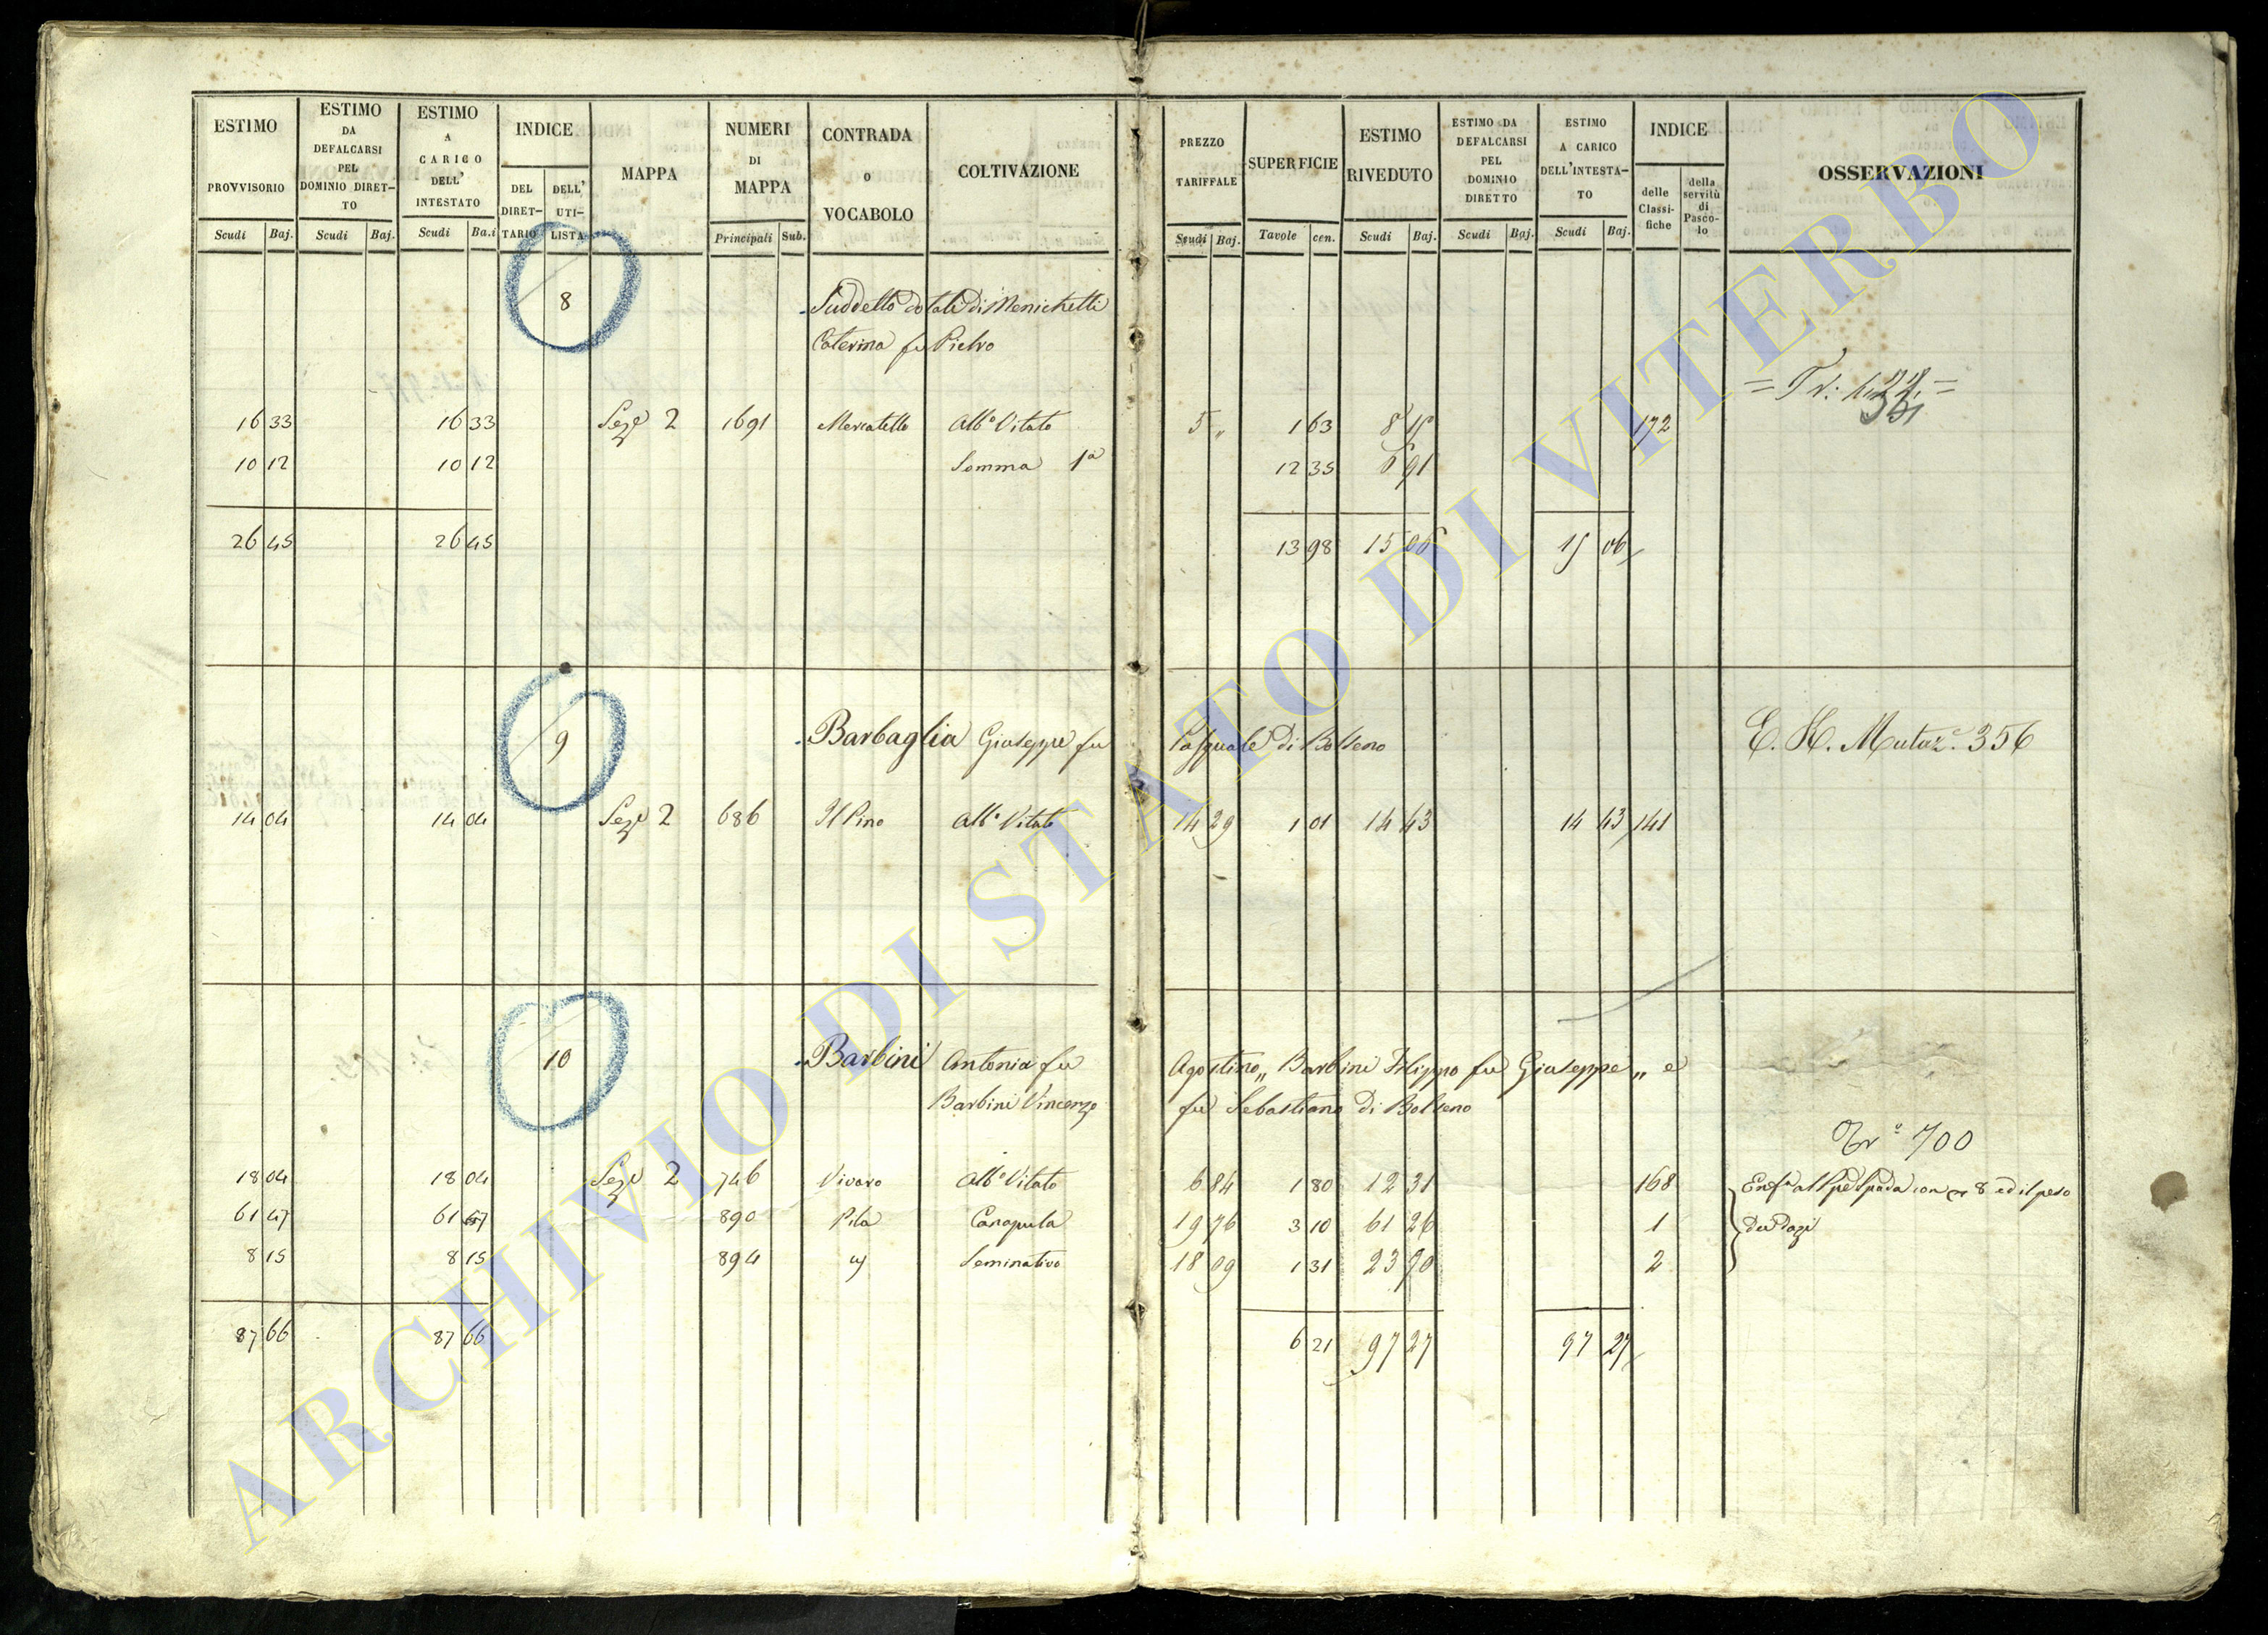 ESTIMO PROVVISORIO
Scudi Baj.
ESTIMO DA DEFALCARSI PEL DOMINIO DIRET-TO
Scudi Baj.
ESTIMO A CARICO DELL' INTESTATO
Scudi Ba.i
INDICE
DEL DIRET-TARIO DELL' UTI-LISTA
MAPPA
NUMERI DI MAPPA
Principali Sub.
CONTRADA O VOCABOLO
COLTIVAZIONE
PREZZO TARIFFALE
Scudi Baj.
SUPERFICIE
Tavole cen.
ESTIMO RIVEDUTO
Scudi Baj.
ESTIMO DA DEFALCARSI PEL DOMINIO DIRETTO
Scudi Baj.
ESTIMO A CARICO DELL'INTESTA-TO
Scudi Baj.
INDICE
delle Classi-fiche della servitù di Pasco-lo
OSSERVAZIONI
8 Suddetto dotali di Menichetti
Caterina fu Pietro
16 33 16 33 Seze 2 1691 Mercatello Alb.o Vitato 5 „ 1 63 8 15 172
10 12 10 12 Somma 1a 12 35 6 91
26 45 26 45 13 98 15 06 15 06
9 Barbaglia Giuseppe fu Pasquale di Bolseno E. H. Mutaz.e 356
14 04 14 04 Seze 2 686 Il Pino Alb.o Vitato 14 29 1 01 14 43 14 43 141
10 Barbini Antonia fu Agostino„ Barbini Filippo fu Giuseppe„ e
Barbini Vincenzo fu Sebastiano di Bolseno
Tr.o 700
18 04 18 04 Seze 2 746 Vivaro Alb.o Vitato 6 84 1 80 12 31 168
61 47 61 47 890 Pila Canapula 19 76 3 10 61 26 1
8 15 8 15 894 Seminativo 18 09 1 31 23 70 2
87 66 87 66 6 21 97 27 97 27
ARCHIVIO DI STATO DI VITERBO